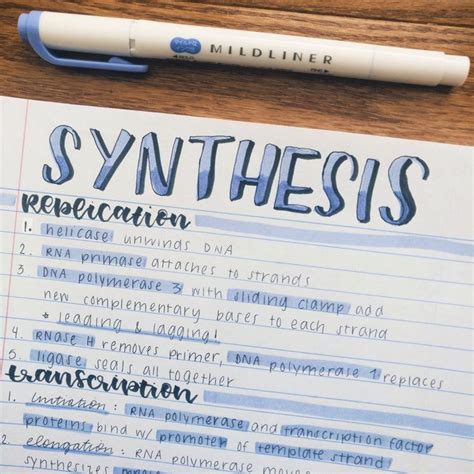 MILDLINER
SYNTHESIS
Replication
1. helicase unwinds DNA
2. RNA primase attaches to strands
3. DNA polymerase 3 with sliding clamp add
new complementary bases to each strand
* leading & lagging!
4. RNase H removes primer, DNA polymerase 1 replaces
5. ligase seals all together
transcription
1. initiation: RNA polymerase and transcription factor
proteins bind w/ promoter of template strand
2. elongation: RNA polymerase moves
synthesizes